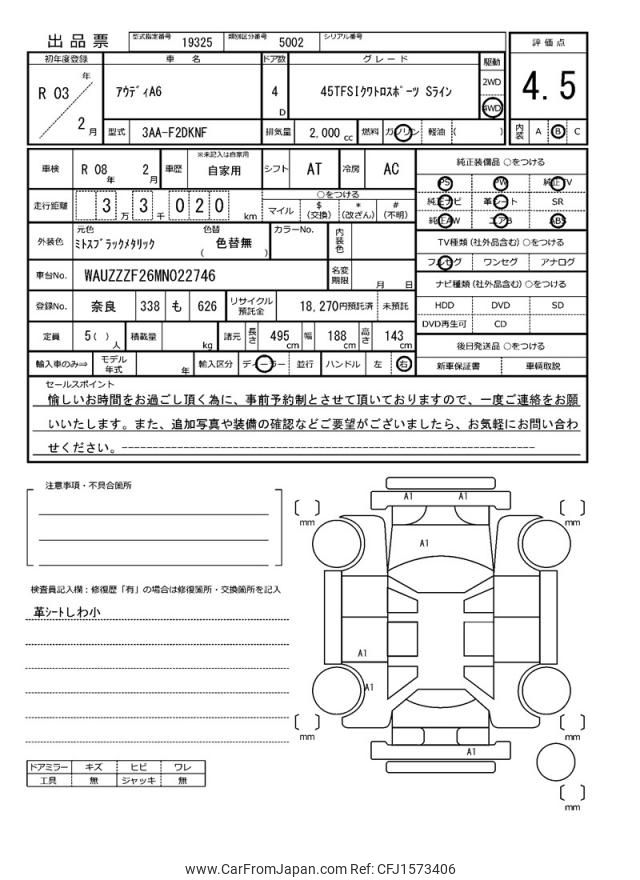 出品票 型式指定番号 19325 類別区分番号 5002 シリアル番号
初年度登録 車名 ドア数 グレード 駆動 評価点
R 03 年 2 月 アウディA6 4 D 45TFSIクワトロスポーツ Sライン 2WD 4WD 4.5
型式 3AA-F2DKNF 排気量 2,000 cc 燃料 ガソリン 軽油 ( ) 内装 A B C
車検 R 08 年 2 月 車歴 ※未記入は自家用 自家用 シフト AT 冷房 AC 純正装備品 ○をつける
PS PW 純正TV
走行距離 3 3 万 3 千 0 2 0 km ○をつける
マイル $ (交換) * (改ざん) # (不明)
純正ナビ 革シート SR
純正AW エアB ABS
外装色 元色 ミトスブラックメタリック 色替 色替無 ( ) カラーNo. 内装色
TV種類 (社外品含む) ○をつける
フルセグ ワンセグ アナログ
車台No. WAUZZZF26MN022746 名変期限 月 日
ナビ種類 (社外品含む) ○をつける
登録No. 奈良 338 も 626 リサイクル預託金 18,270円預託済 未預託
HDD DVD SD
DVD再生可 CD
定員 5( ) 人 積載量 kg 諸元 長さ 495 cm 幅 188 cm 高さ 143 cm
後日発送品 ○をつける
輸入車のみ⇒ モデル年式 年 輸入区分 ディーラー 並行 ハンドル 左 右
新車保証書 車輌取説
セールスポイント
愉しいお時間をお過ごし頂く為に、事前予約制とさせて頂いておりますので、一度ご連絡をお願
いいたします。また、追加写真や装備の確認などご要望がございましたら、お気軽にお問い合わ
せください。------------------------------------------------------------
注意事項・不具合箇所
検査員記入欄：修復歴「有」の場合は修復箇所・交換箇所を記入
革シートしわ小
ドアミラー キズ ヒビ ワレ
工具 無 ジャッキ 無
A1 A1
[ ] mm [ ] mm
A1
A1
A1
[ ] mm [ ] mm
A1
[ ] mm
www.CarFromJapan.com Ref: CFJ1573406